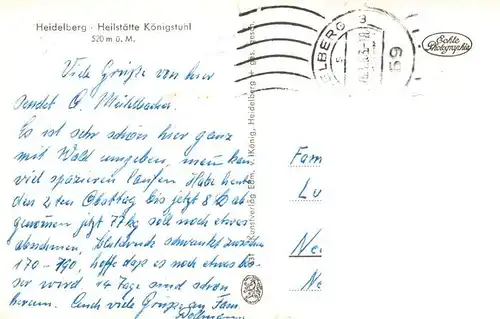 Heidelberg · Heilstätte Königstuhl
520 m ü. M.
Echte
Photographie
Viele Grüße von hier
sendet G. Mittelbacher.
Es ist sehr schön hier ganz
mit Wald umgeben, man kan
viel spazieren laufen Habe heute
den 2ten Obsttag bis jetzt 8 ℔ ab
genommen jetzt 77 kg soll noch etwas
abnehmen, blutdruck schwankt zwischen
170 - 190, hoffe daß es noch etwas bes
ser wird. 14 Tage sind schon
herum. Auch viele Grüße an Fam.
Dollmann
Kunstverlag Edm. v. König, Heidelberg
Fam
Lu
Ne
Ne